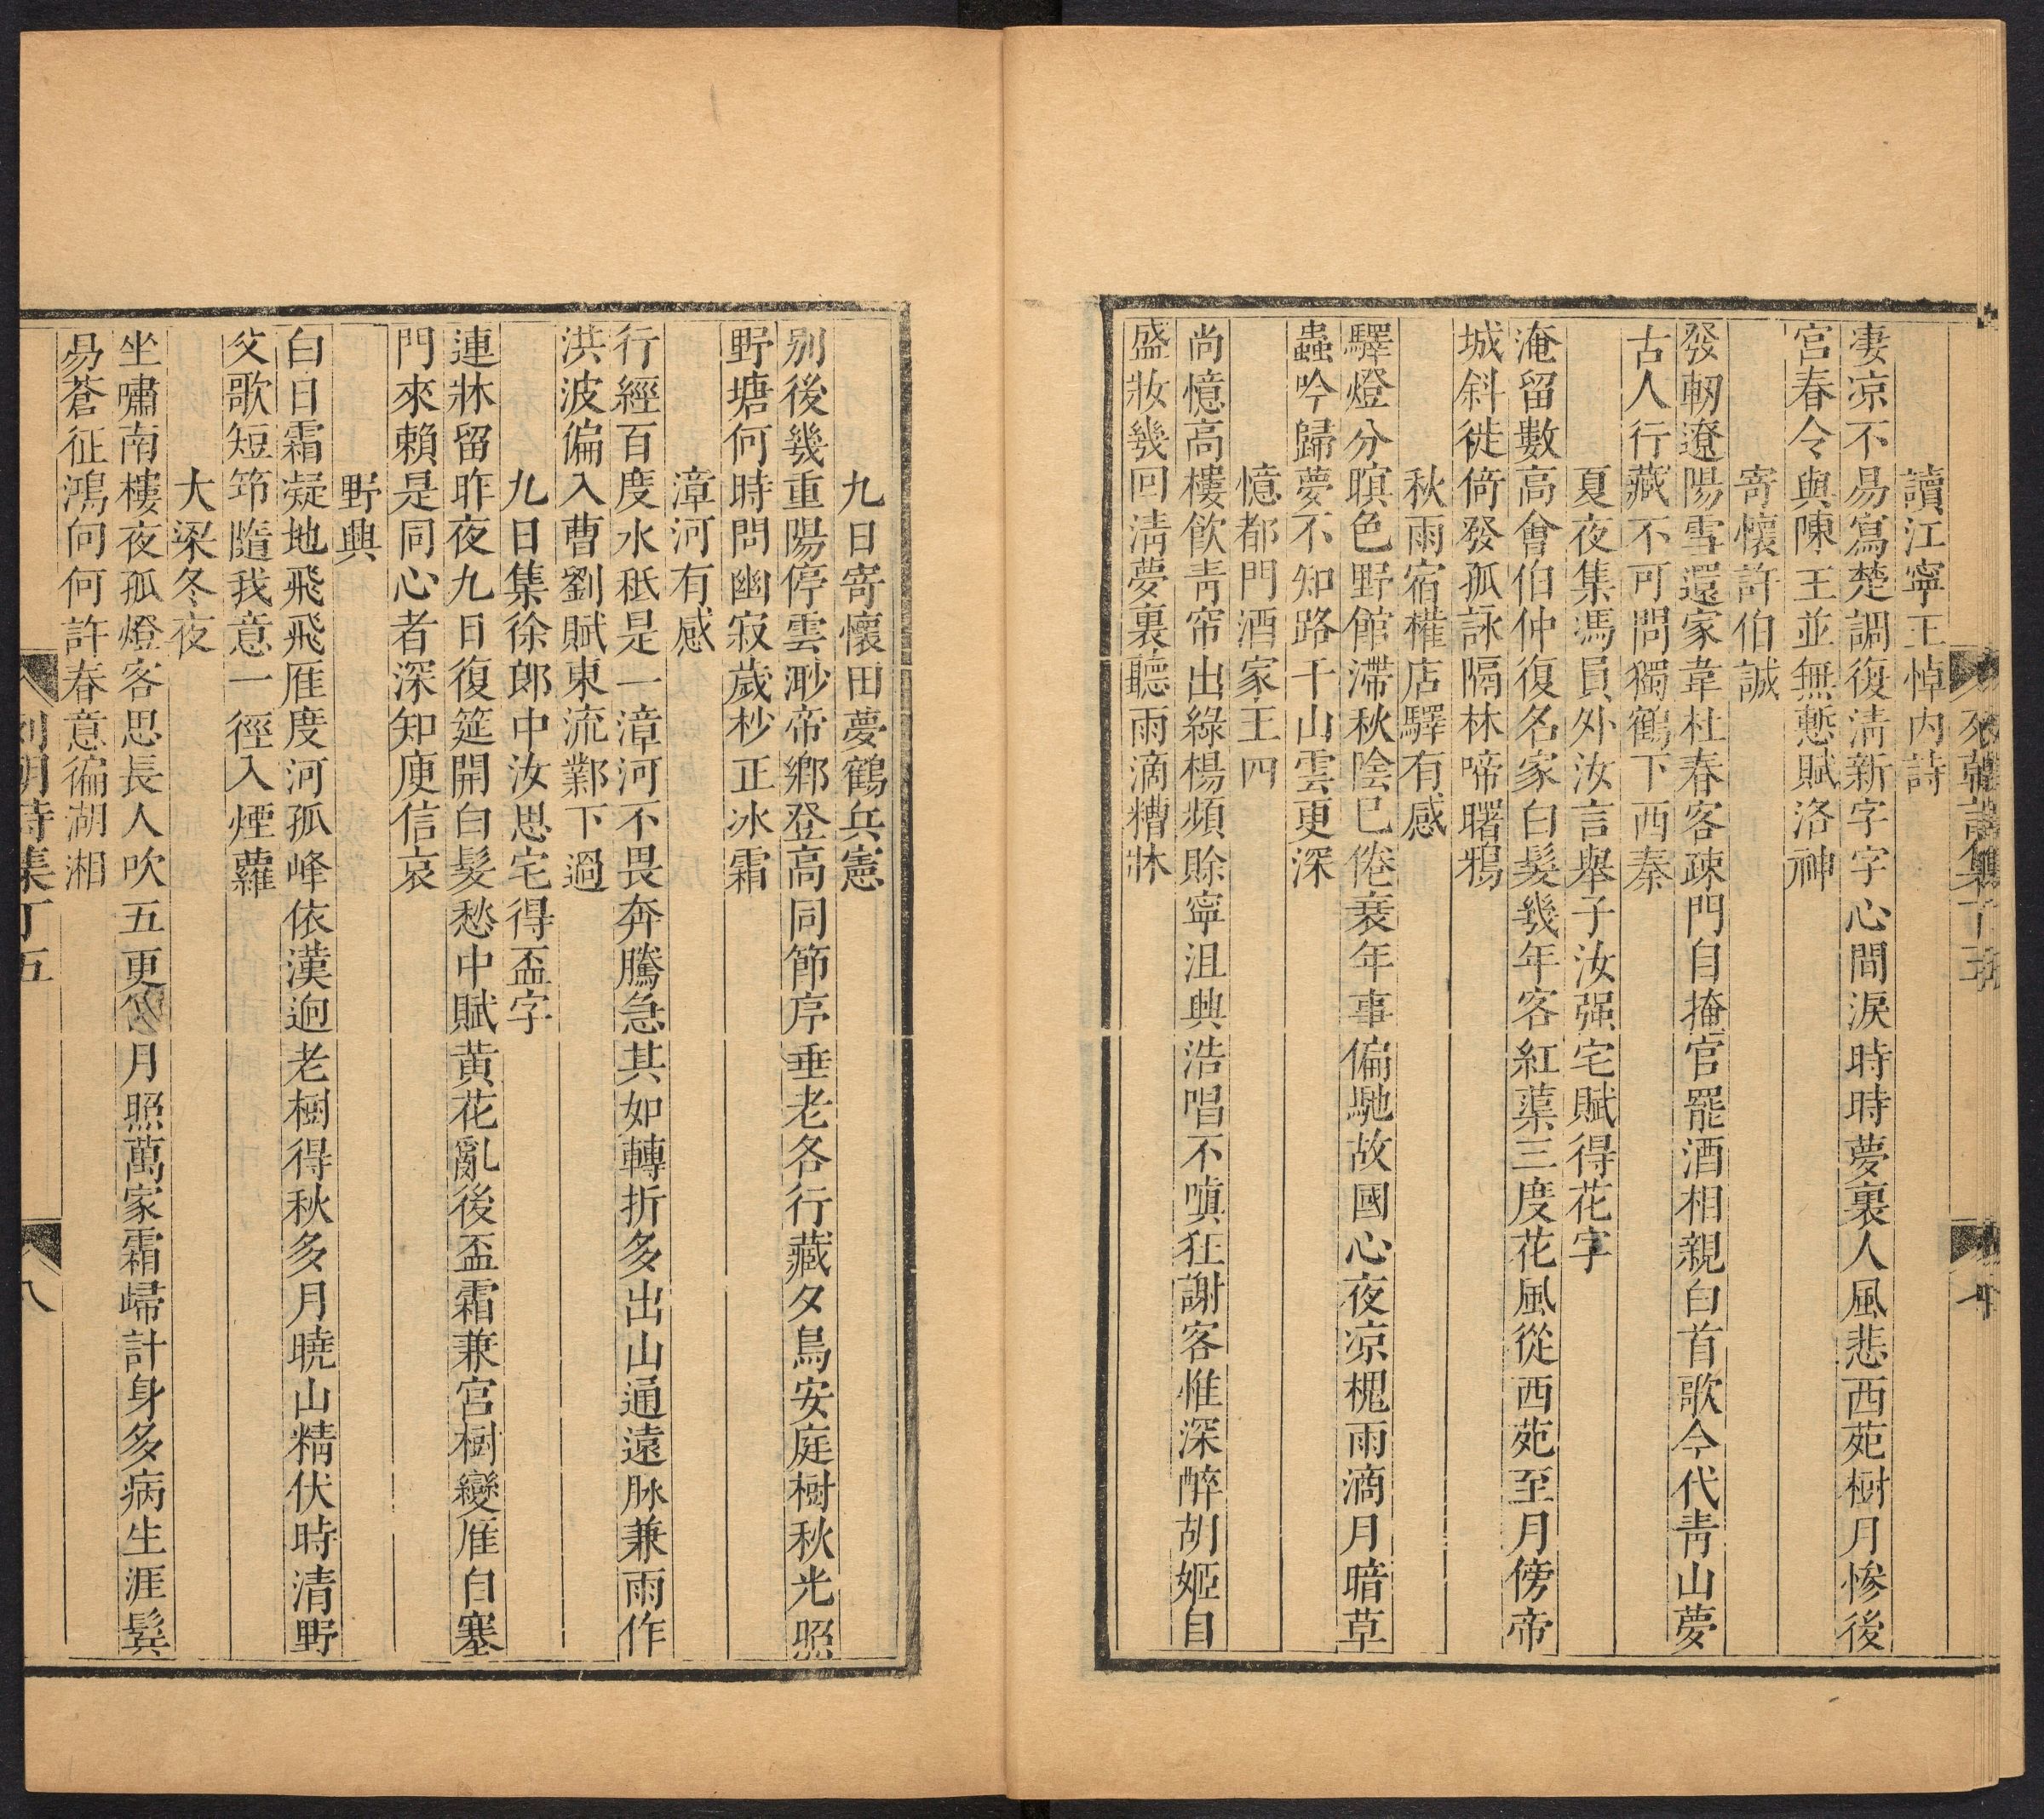 讀江寧王悼內詩
淒凉不易寫楚調復淸新字字心間淚時時夢裏人風悲西苑樹月慘後
宮春令與陳王並無慙賦洛神
寄懷許伯誠
發軔遼陽雪還家韋杜春客疎門自掩官罷酒相親白首歌今代靑山夢
古人行藏不可問獨鶴下西秦
夏夜集馮員外汝言舉子汝强宅賦得花字
淹留數高會伯仲復名家白髮幾年客紅蕖三度花風從西苑至月傍帝
城斜徙倚發孤詠隔林啼曙鴉
秋雨宿權店驛有感
驛燈分暝色野館滯秋陰已倦衰年事偏馳故國心夜凉槐雨滴月暗草
蟲吟歸夢不知路千山雲更深
憶都門酒家王四
尚憶高樓飲靑帘出綠楊頻賒寧沮興浩唱不嗔狂謝客惟深醉胡姬自
盛妝幾回淸夢裏聽雨滴糟牀
九日寄懷田夢鶴兵憲
別後幾重陽停雲渺帝鄉登高同節序垂老各行藏夕鳥安庭樹秋光照
野塘何時問幽寂歲杪正冰霜
漳河有感
行經百度水秪是一漳河不畏奔騰急其如轉折多出山通遠脉兼雨作
洪波偏入曹劉賦東流鄴下過
九日集徐郎中汝思宅得盃字
連牀留昨夜九日復筵開白髮愁中賦黃花亂後盃霜兼宮樹變雁自塞
門來賴是同心者深知庾信哀
野興
白日霜凝地飛飛雁度河孤峰依漢迥老樹得秋多月曉山精伏時清野
父歌短筇隨我意一徑入煙蘿
大梁冬夜
坐嘯南樓夜孤燈客思長人吹五更 月照萬家霜歸計身多病生涯鬢
易蒼征鴻向何許春意徧湖湘
列朝詩集丁五
八